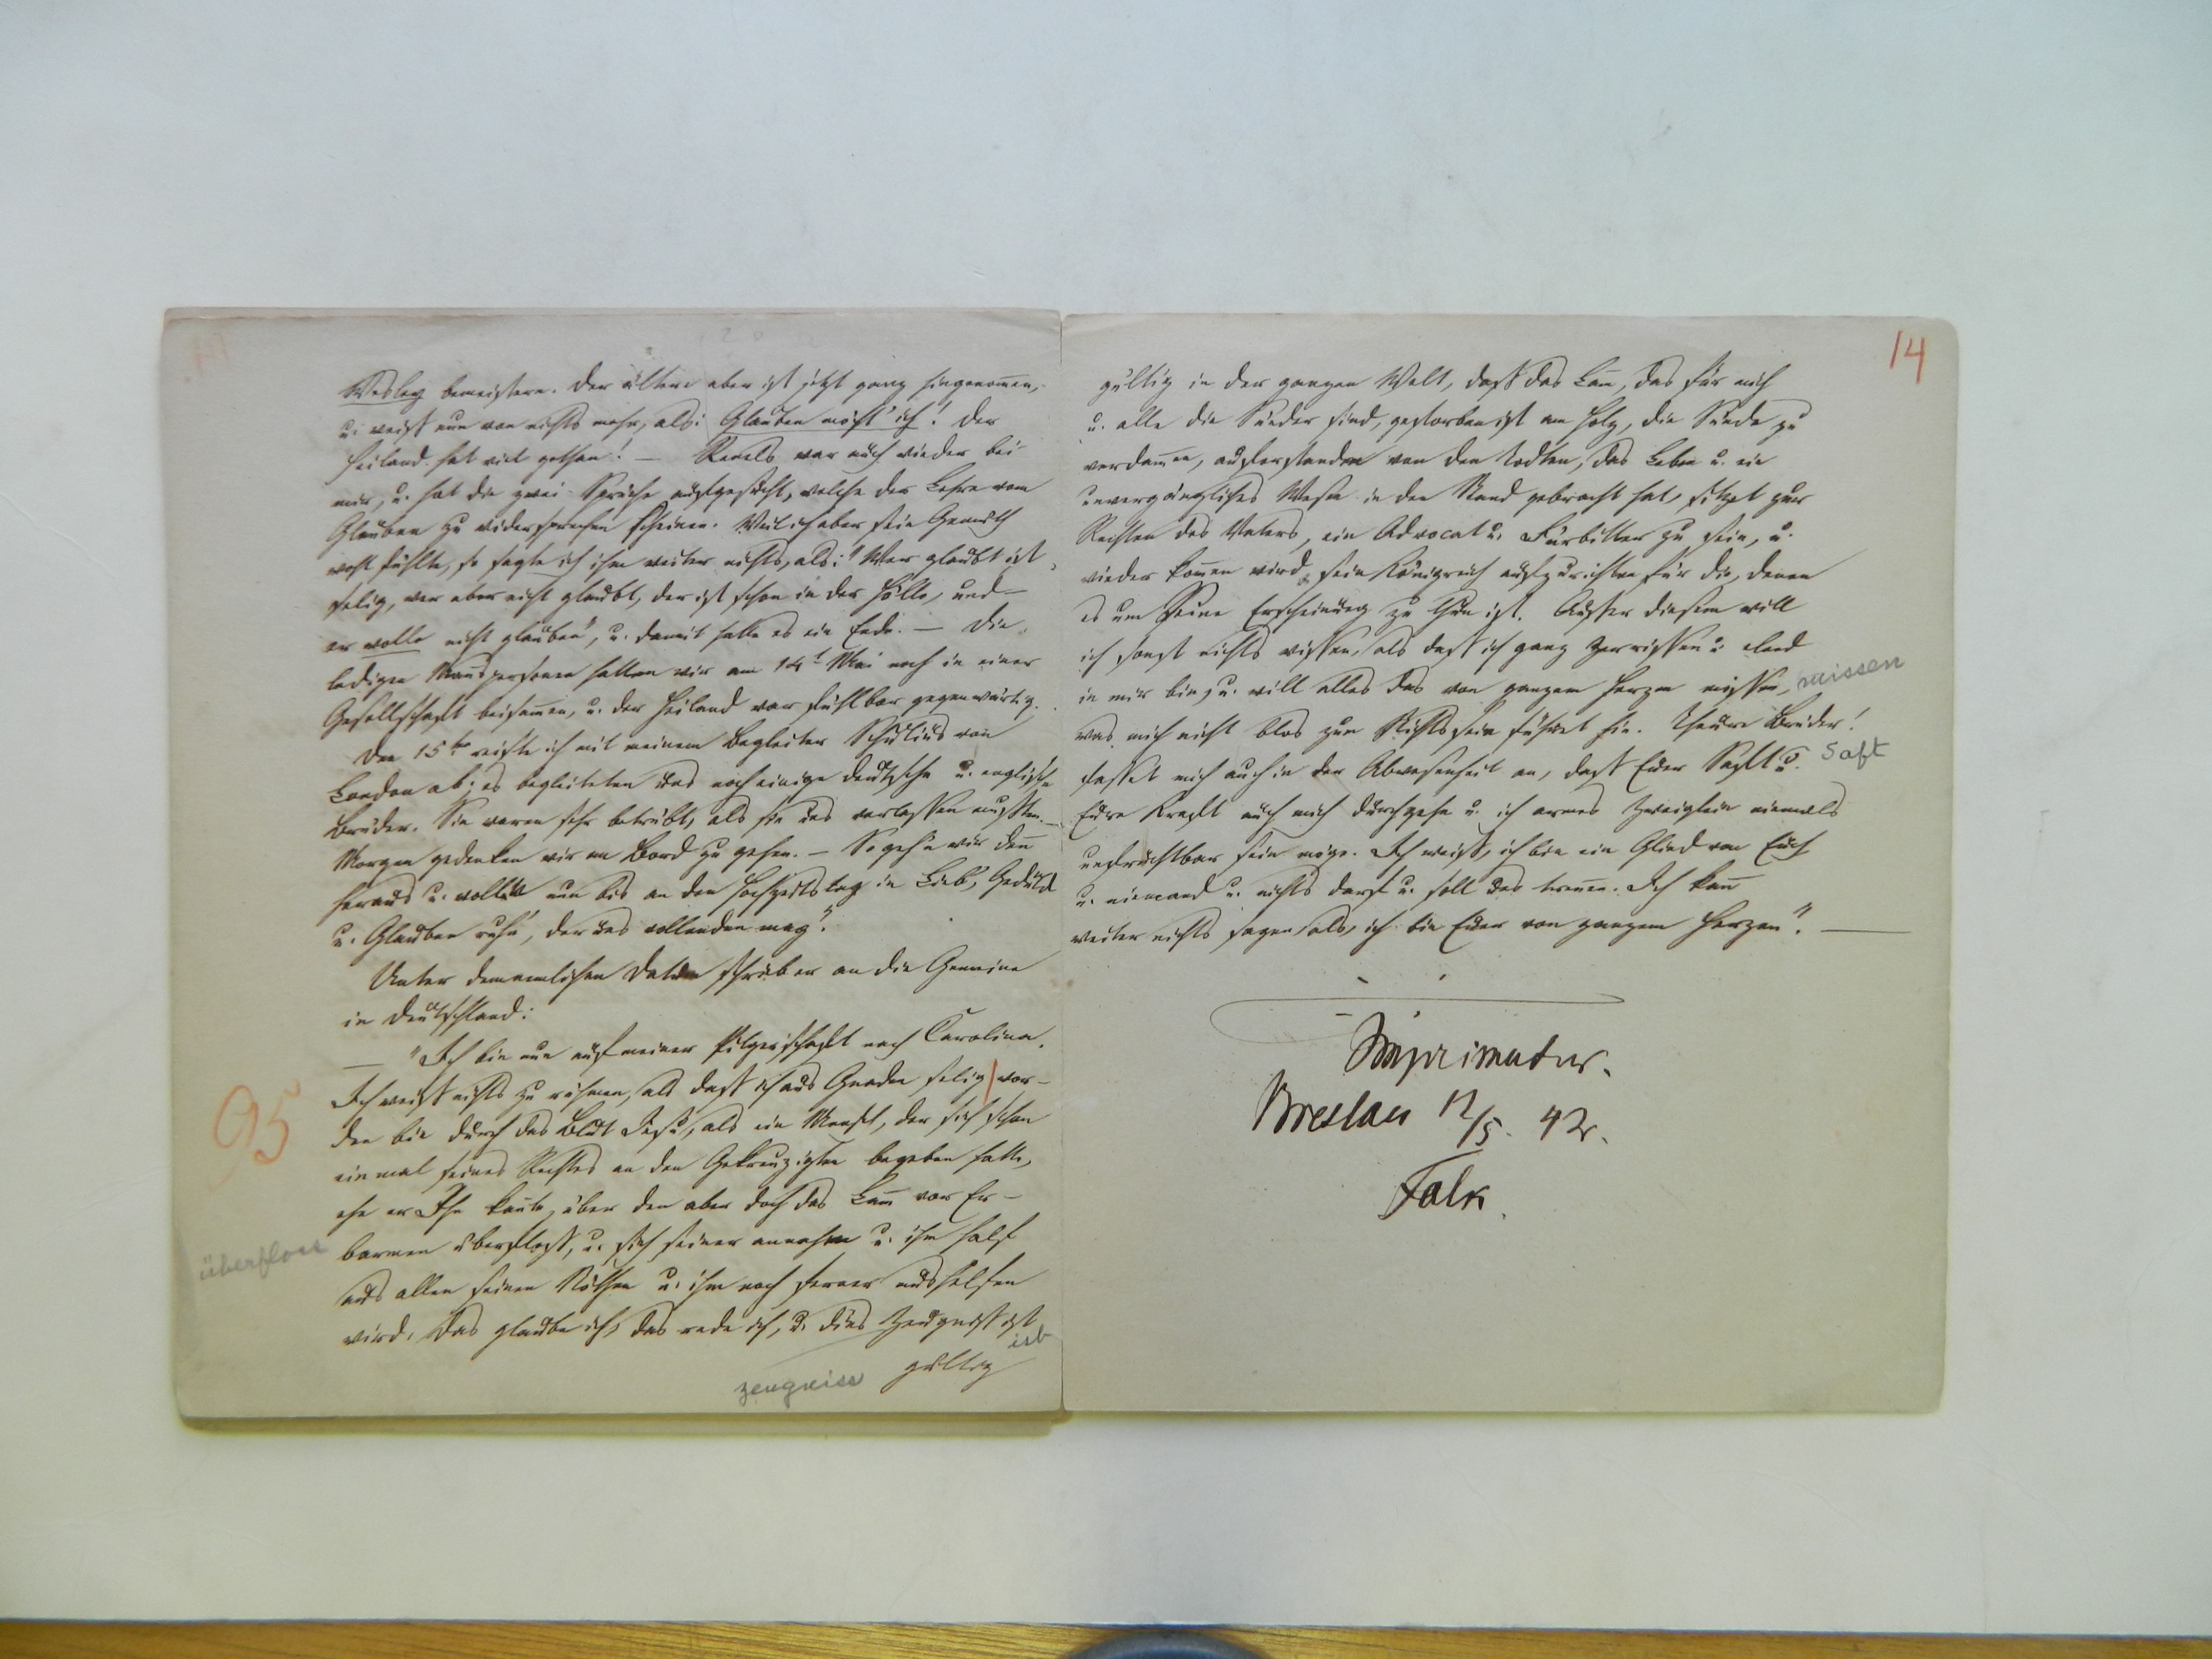 Wesley bemeistern. Der ältere aber ist jetzt ganz hingenom̄en,
u. weiß nun von nichts mehr, als: Glauben möcht' ich! der
Heiland hat viel gethan! — war auch wieder bei
mir, u. hat die zwei Sprüche aufgesucht, welche der Lehre vom
Glauben zu widersprechen scheinen. Weil ich aber sein Gemüth
wohl fühlte, so sagte ich ihm weiter nichts, als: "Wer glaubt ist
selig, wer aber nicht glaubt, der ist schon in der Hölle, und
er wolle nicht glauben", u. damit hatte es ein Ende. — Die
ledigen Mannspersonen hatten wir am 14t Mai noch in einer
Gesellschaft beisam̄en, u. der Heiland war fühlbar gegenwärtig.
Den 15ten reiste ich mit meinem Begleiter Schulius von
London ab; es begleiteten uns noch einige deutsche u. englische
Brüder. Sie waren sehr betrübt, als sie uns verlassen mußten. —
Morgen gedenken wir an Bord zu gehen. — So geh'n wir den̄
heraus u. woll'n nun bis an den Hochzeitstag in Lieb', Geduld
u. Glauben ruh'n, der uns vollenden mag."
Unter dem nemlichen Datum schrieb er an die Gemeine
in Deutschland:
— "Ich bin nun auf meiner Pilgerschaft nach Carolina.
Ich weiß nichts zu rühmen, als daß ich aus Gnaden selig wor-
95
den bin durch das Blut Jesu, als ein Mensch, der sich schon
einmal seines Rechtes an den Gekreuzigten begeben hatte,
ehe er Ihn kan̄te, über den aber doch das Lam̄ vor Er-
barmen überfloß, u. sich seiner annahm u. ihm half
überfloss
aus allen seinen Nöthen u. ihm noch ferner aushelfen
wird. Das glaube ich, das rede ich, u. dies Zeugniß ist
ist
zeugniss gültig
14
gültig in der ganzen Welt, daß das Lam̄, das für mich
u. alle die Sünder sind, gestorben ist am Holz, die Sünde zu
verdam̄en, auferstanden von den Todten, das Leben u. ein
unvergängliches Wesen in den Stand gebracht hat, sitzet zur
Rechten des Vaters, ein Advocat u. Fürbitter zu sein, u.
wieder kom̄en wird, sein Königreich aufzurichten für die, denen
es um seine Erscheinung zu thun ist. Außer diesem will
ich sonst nichts wissen, als daß ich ganz zerrissen u. elend
in mir bin; u. will alles das von ganzem Herzen missen, missen
was mich nicht blos zum Nichtssein führet hin. Theure Brüder!
fasset mich auch in der Abwesenheit an, daß Euer Saft u. Saft
Eure Kraft auch mich durchgehe u. ich armes Zweiglein niemals
unfruchtbar sein möge. Ich weiß, ich bin ein Glied von Euch
u. niemand u. nichts darf u. soll uns tren̄en. Ich kan̄
weiter nichts sagen, als, ich bin Euer von ganzem Herzen". —
Imprimatur.
Breslau 12/5. 42.
Falk.